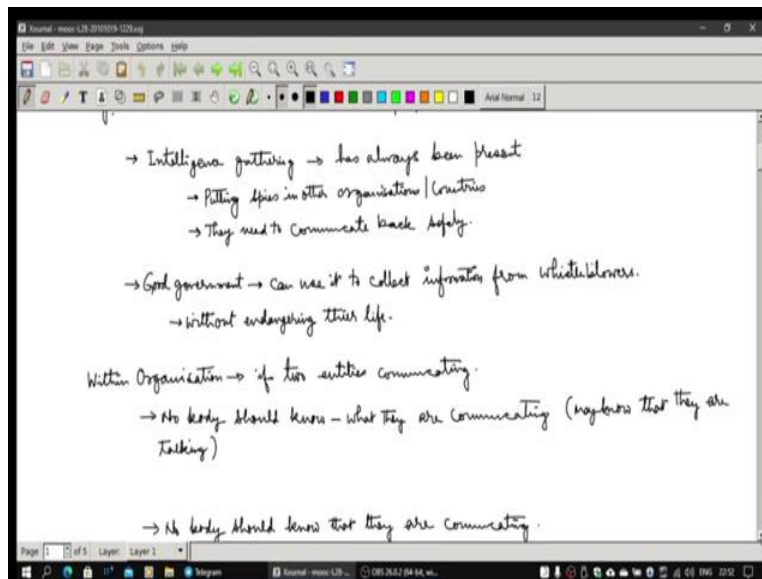 Xournal - mooc-L28-20101019-1229.xoj
File Edit View Page Tools Options Help
Arial Normal 12
→ Intelligence gathering → has always been present
→ Putting spies in other organisations / Countries
→ They need to commucate back safely.
→ Good government → can use it to collect information from whistleblowers.
→ without endangering thier life.
Within Organisation → if two entities commucating.
→ No body should know - what they are commucating (may know that they are
talking)
→ No body should know that they are commucating.
Page 1 of 5 Layer: Layer 1
Telegram Xournal - mooc-L28-... OBS 26.0.2 (64-bit, wi... ENG 22:52